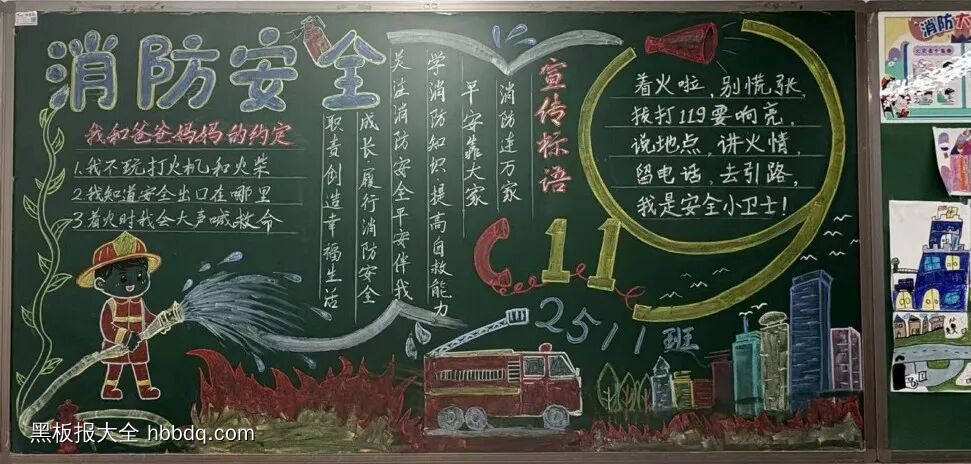 消防安全
我和爸爸妈妈的约定
1.我不玩打火机和火柴
2.我知道安全出口在哪里
3.着火时我会大声喊救命
宣传标语
消防连万家
平安靠大家
学消防知识提高自救能力
关注消防安全平安伴我
成长履行消防安全
职责创造幸福生活
着火啦,别慌张,
拨打119要响亮,
说地点,讲火情,
留电话,去引路,
我是安全小卫士!
119
2511班
消防大
黑板报大全 hbbdq.com